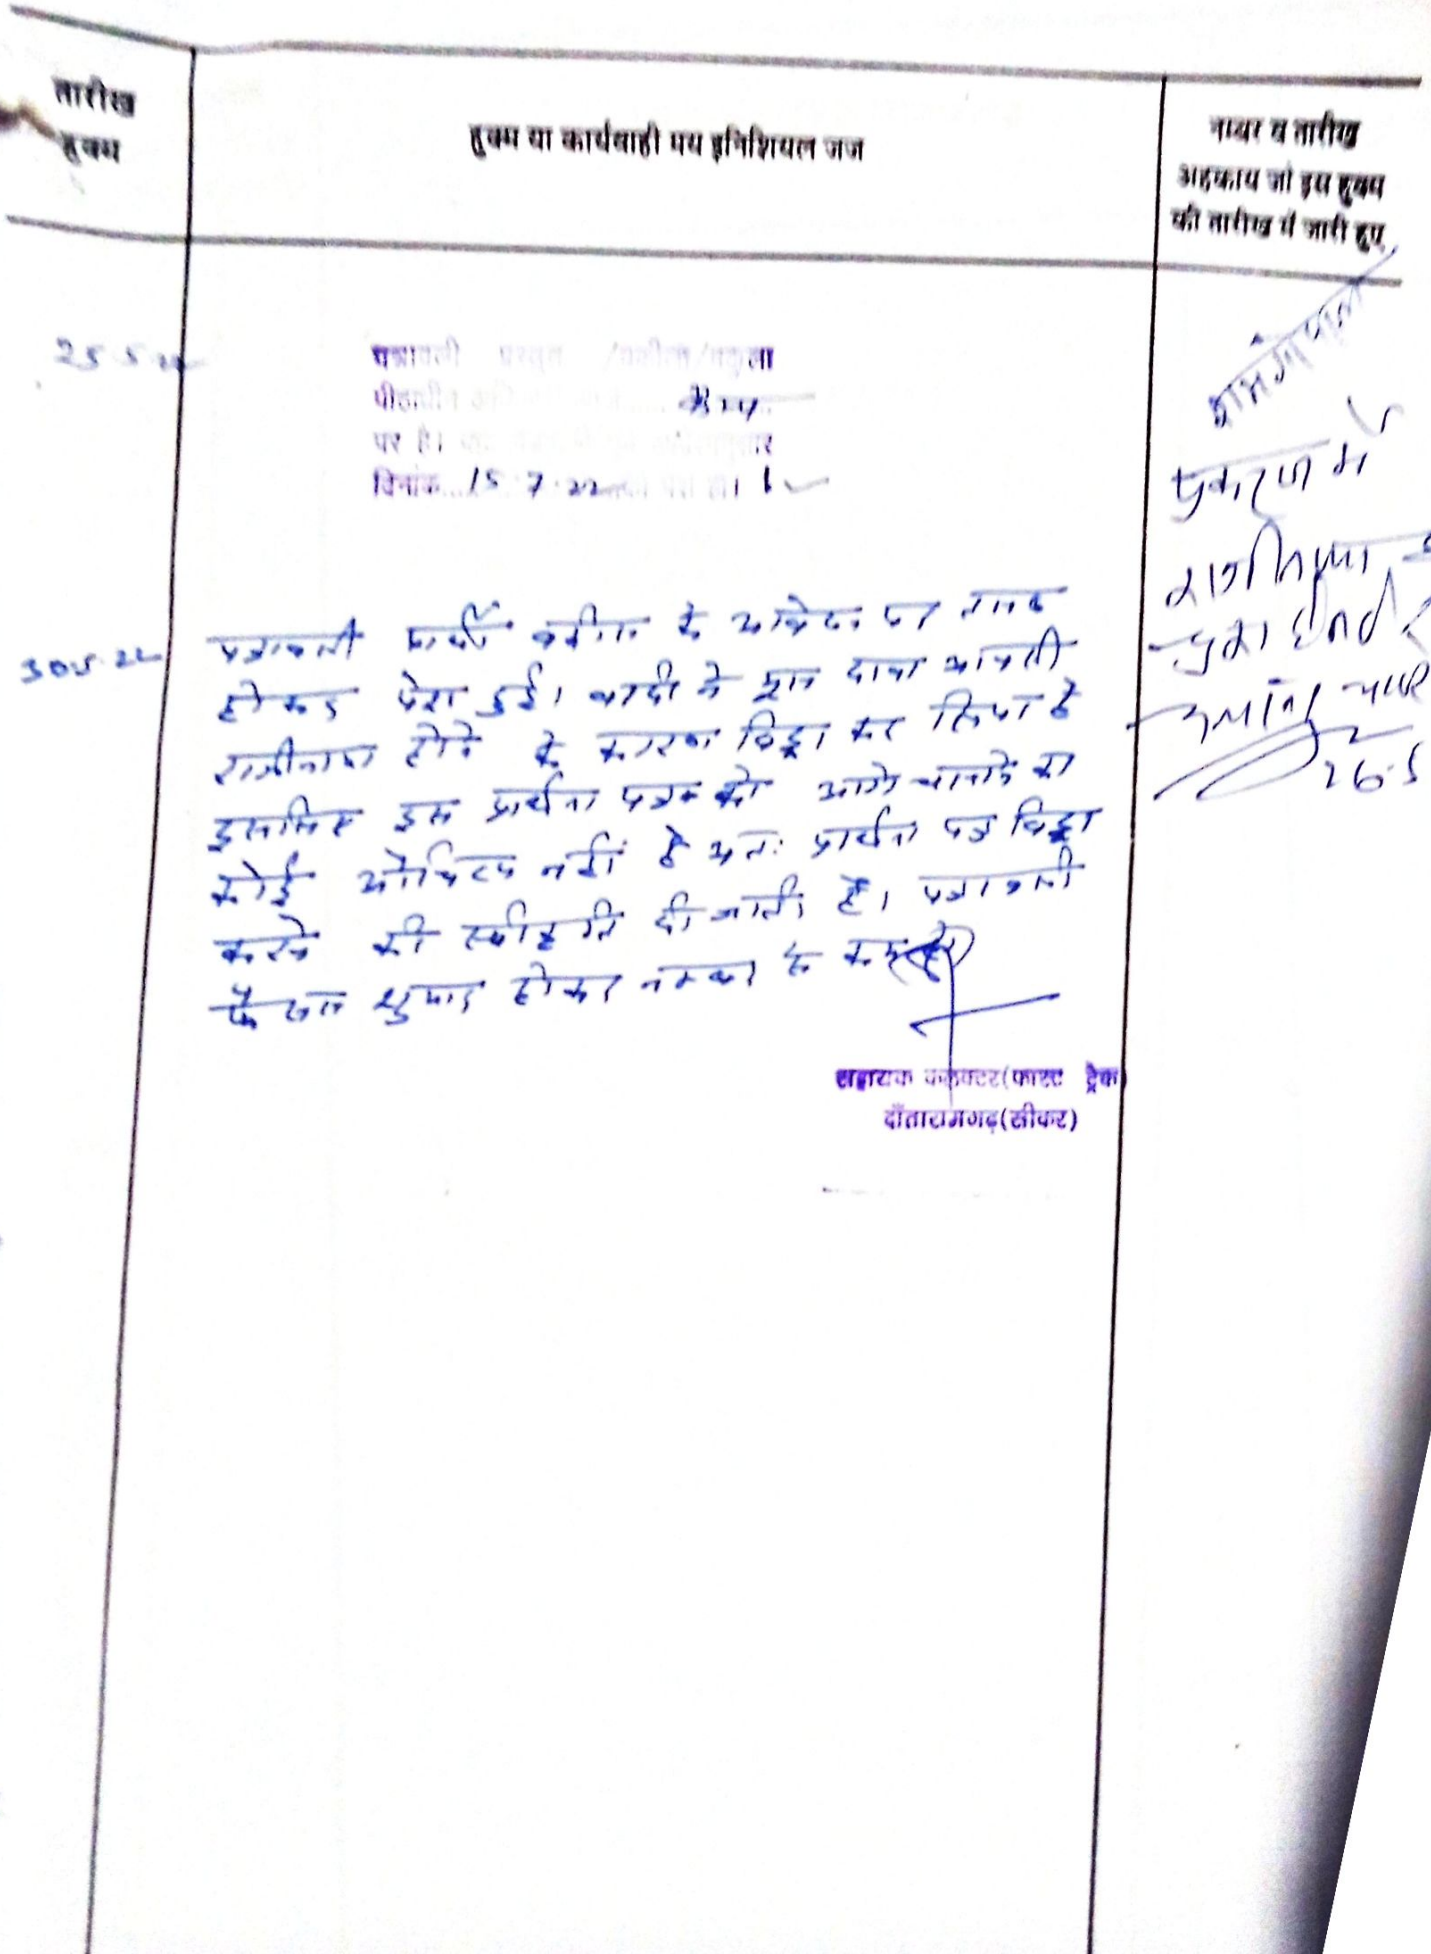 तारीख
हुक्म
हुक्म या कार्यवाही मय इनिशियल जज
नम्बर व तारीख
अहकाम जो इस हुक्म
की तारीख में जारी हुए
25.5.22
पत्रावली प्रस्तुत /वकील/वकुला
पीठासीन कैम्प
पर है।
दिनांक 15.7.22 को पेश हो।
30.5.22
पत्रावली प्रार्थी वकील के आवेदन पर तलब
होकर पेश हुई। वादी ने मूल दावा आपसी
राजीनामा होने के कारण विड्रा कर लिया है
इसलिए इस प्रार्थना पत्र को आगे चलाने का
कोई औचित्य नहीं है अतः प्रार्थना पत्र विड्रा
करने की स्वीकृति दी जाती है। पत्रावली
फैसल शुमार होकर नम्बर से कम हो
सहायक कलक्टर(फास्ट ट्रेक)
दाँतारामगढ़(सीकर)
प्रकरण में
राजीनामा
26.5